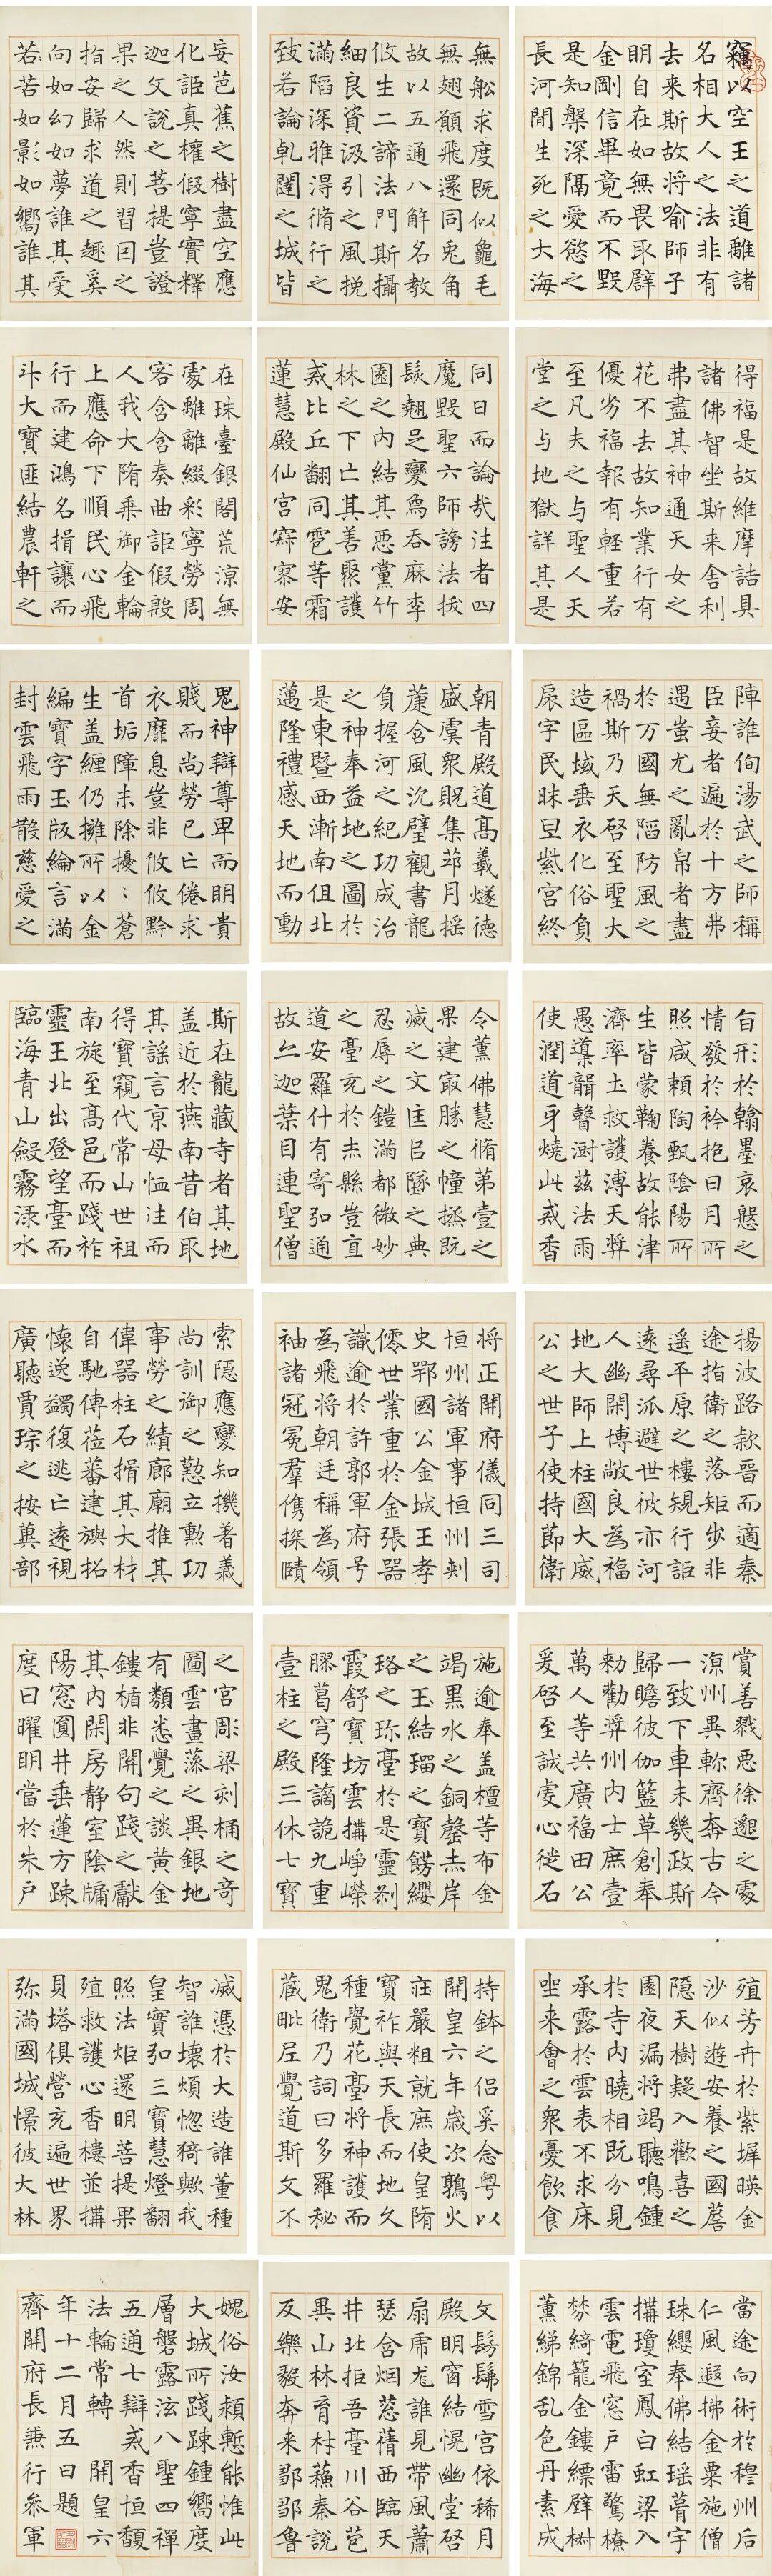 竊以空王之道離諸
名相大人之法非有
去来斯故将喻師子
明自在如無畏取譬
金剛信畢竟而不毀
是知槃深隔愛慾之
長河間生死之大海
無舩求度既似龜毛
無翅願飛還同兎角
故以五通八解名教
攸生二諦法門斯攝
細良資汲引之風挽
滿陷深雅淂脩行之
致若論乹闥之城皆
妄芭蕉之樹盡空應
化詎真權假寧實釋
迦文說之菩提豈證
果之人然則習因之
指安歸求道之趣奚
向如幻如夢誰其受
若苦如影如嚮誰其
得福是故維摩詰具
諸佛智坐斯来舍利
弗盡其神通天女之
花不去故知業行有
優劣福報有輕重若
至凡夫之与聖人天
堂之与地獄詳其是
同日而論㢤注者四
魔毀聖六師謗法拔
髮翹足變烏吞麻李
園之内結其悪黨竹
林之下亡其善聚護
戒比丘翻同雹等霜
蓮慧殿仙宫寂寥安
在珠臺銀閣荒涼無
處離離綴彩寧勞周
客含含奏曲詎假殷
人我大隋乗御金輪
上應命下順民心飛
行而建鴻名揖讓而
斗大寶匪結農軒之
陣誰侚湯武之師稱
臣妾者遍於十方弗
遇蚩尤之亂帛者盡
於万國無陷防風之
禍斯乃天啓至聖大
造區域垂衣化俗負
扆字民昧旦紫宫終
朝青殿道高羲燧德
盛虞衆貺集蓂月搖
萐含風沉璧觀書龍
負握河之紀功成治
之神奉益地之圖於
是東暨西漸南伹北
邁隆禮感天地而動
鬼神辯尊卑而明貴
賤而尚勞已亡倦求
衣靡息豈非攸攸黔
首垢障未除擾〻蒼
生盖纏仍擁所以金
編寶字玉版綸言滿
封雲飛雨散慈愛之
旨形於翰墨哀慇之
情發於衿抱日月所
照咸頼陶甄陰陽所
生皆蒙鞠養故能津
濟率土救護溥天奬
愚䆃聾瞽澍茲法雨
使潤道牙燒此戒香
令薫佛慧脩第壹之
果建㝡勝之幢拯既
滅之文匡已墜之典
忍辱之鎧滿都微妙
之臺充於赤縣豈直
道安羅什有寄弘通
故亦迦葉目連聖僧
斯在龍藏寺者其地
盖近於燕南昔伯取
其謡言京母恤往而
得寶窺代常山世祖
南旋至高邑而踐祚
靈王北出登望臺而
臨海青山斂霧渌水
揚波路款晋而適秦
途指衛之落矩步非
遥平原之樓䂓行詎
遠尋派避世彼亦河
人幽閑博敞良為福
地大師上柱國大威
公之世子使持節衛
将正開府儀同三司
恒州諸軍事恒州刺
史鄂國公金城王孝
僊世業重於金張器
識逾於許郭軍府号
為飛将朝廷稱為領
袖諸冠冕羣儁探賾
索隱應變知機著義
尚訓御之懃立勲功
事勞之績廊廟推其
偉器柱石揖其大材
自馳傳莅蕃建旟招
懷逆蠲復逃亡遠視
廣聽賈琮之按冀部
賞善戮悪徐邈之處
涼州異軫齊奔古今
一致下車未幾政斯
歸瞻彼伽籃草創奉
勑勸奬州内士庶壹
萬人等共廣福田公
爰啓至誠虔心徙石
施逾奉盖檀等布金
竭黒水之銅罄赤岸
之玉結瑠之寶飾纓
珞之珎臺於是靈刹
霞舒寶坊雲搆崢嶸
膠葛穹隆譎詭九重
壹柱之殿三休七寶
之宫彫梁刻桷之奇
圖雲畫藻之異銀地
有類悉覺之談黄金
鏤楯非開句踐之獻
其内閑房静室陰牖
陽窓圓井垂蓮方踈
度日曜明當於朱戶
殖芳卉於紫墀暎金
沙似遊安養之國簷
隠天樹疑入歡喜之
園夜漏将竭聽鳴鍾
於寺内曉相既分見
承露於雲表不求床
坐来會之衆憂飲食
持鉢之侣奚念粤以
開皇六年歳次鶉火
莊嚴粗就庶使皇隋
寶祚與天長而地久
種覺花臺将神護而
鬼衛乃詞曰多羅秘
藏毗尼覺道斯文不
滅憑於大造誰董種
智誰壞煩惚猗歟我
皇實弘三寶慧燈翻
照法炬還明菩提果
殖救護心香樓並搆
貝塔俱營充遍世界
弥滿國城憬彼大林
當途向術於穆州后
仁風遐拂金粟施僧
珠纓奉佛結瑶葺宇
搆瓊室鳳白虹梁入
雲電飛窓戶雷驚橑
棼綺籠金鏤縹壁椒
薫綈錦乱色丹素成
文髣髴雪宫依稀月
殿明窗結愰幽堂啓
扇虎尨誰見帶風蕭
瑟含烟葱蒨西臨天
井北拒吾臺川谷苞
異山林育材蘇秦說
反樂毅奔来鄒邹魯
媿俗汝頛慙能惟此
大城所踐踈鍾嚮度
層磐露泫八聖四禪
五通七辯戒香恒馥
法輪常轉 開皇六
年十二月五日題
齊開府長兼行叅軍